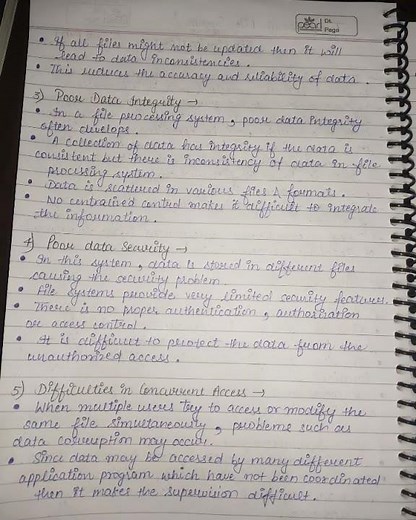 pearl
Dt.
Page
• If all files might not be updated then it will
lead to data inconsistencies.
• This reduces the accuracy and reliability of data.
3) Poor Data Integrity →
• In a file processing system, poor data integrity
often develops.
• A collection of data has integrity if the data is
consistent but there is inconsistency of data in file
processing system.
• Data is scattered in various files & formats.
• No centralised control makes it difficult to integrate
the information.
4) Poor data Security →
• In this system, data is stored in different files
causing the security problem
• File systems provide very limited security features.
• There is no proper authentication, authorisation
or access control.
• It is difficult to protect the data from the
unauthorized access.
5) Difficulties in Concurrent Access →
• When multiple users try to access or modify the
same file simultaneously, problems such as
data corruption may occur.
• Since data may be accessed by many different
application program which have not been coordinated
then it makes the supervision difficult.